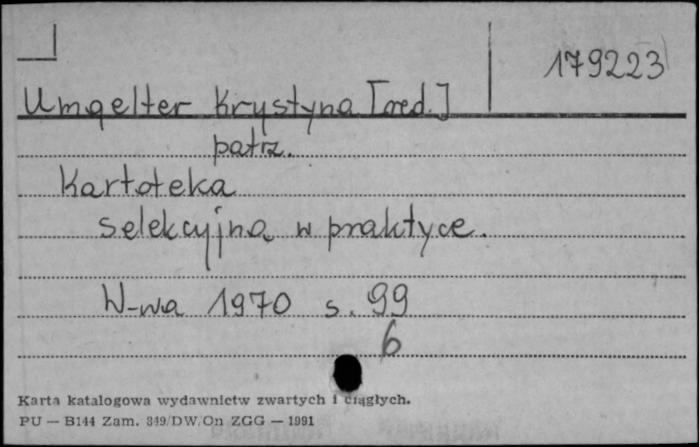 179223
Umgelter Krystyna [red.]
patrz.
Kartoteka
selekcyjna w praktyce.
W-wa 1970 s. 99
6
Karta katalogowa wydawnictw zwartych i ciągłych.
PU — B144 Zam. 849/DW/On ZGG — 1991